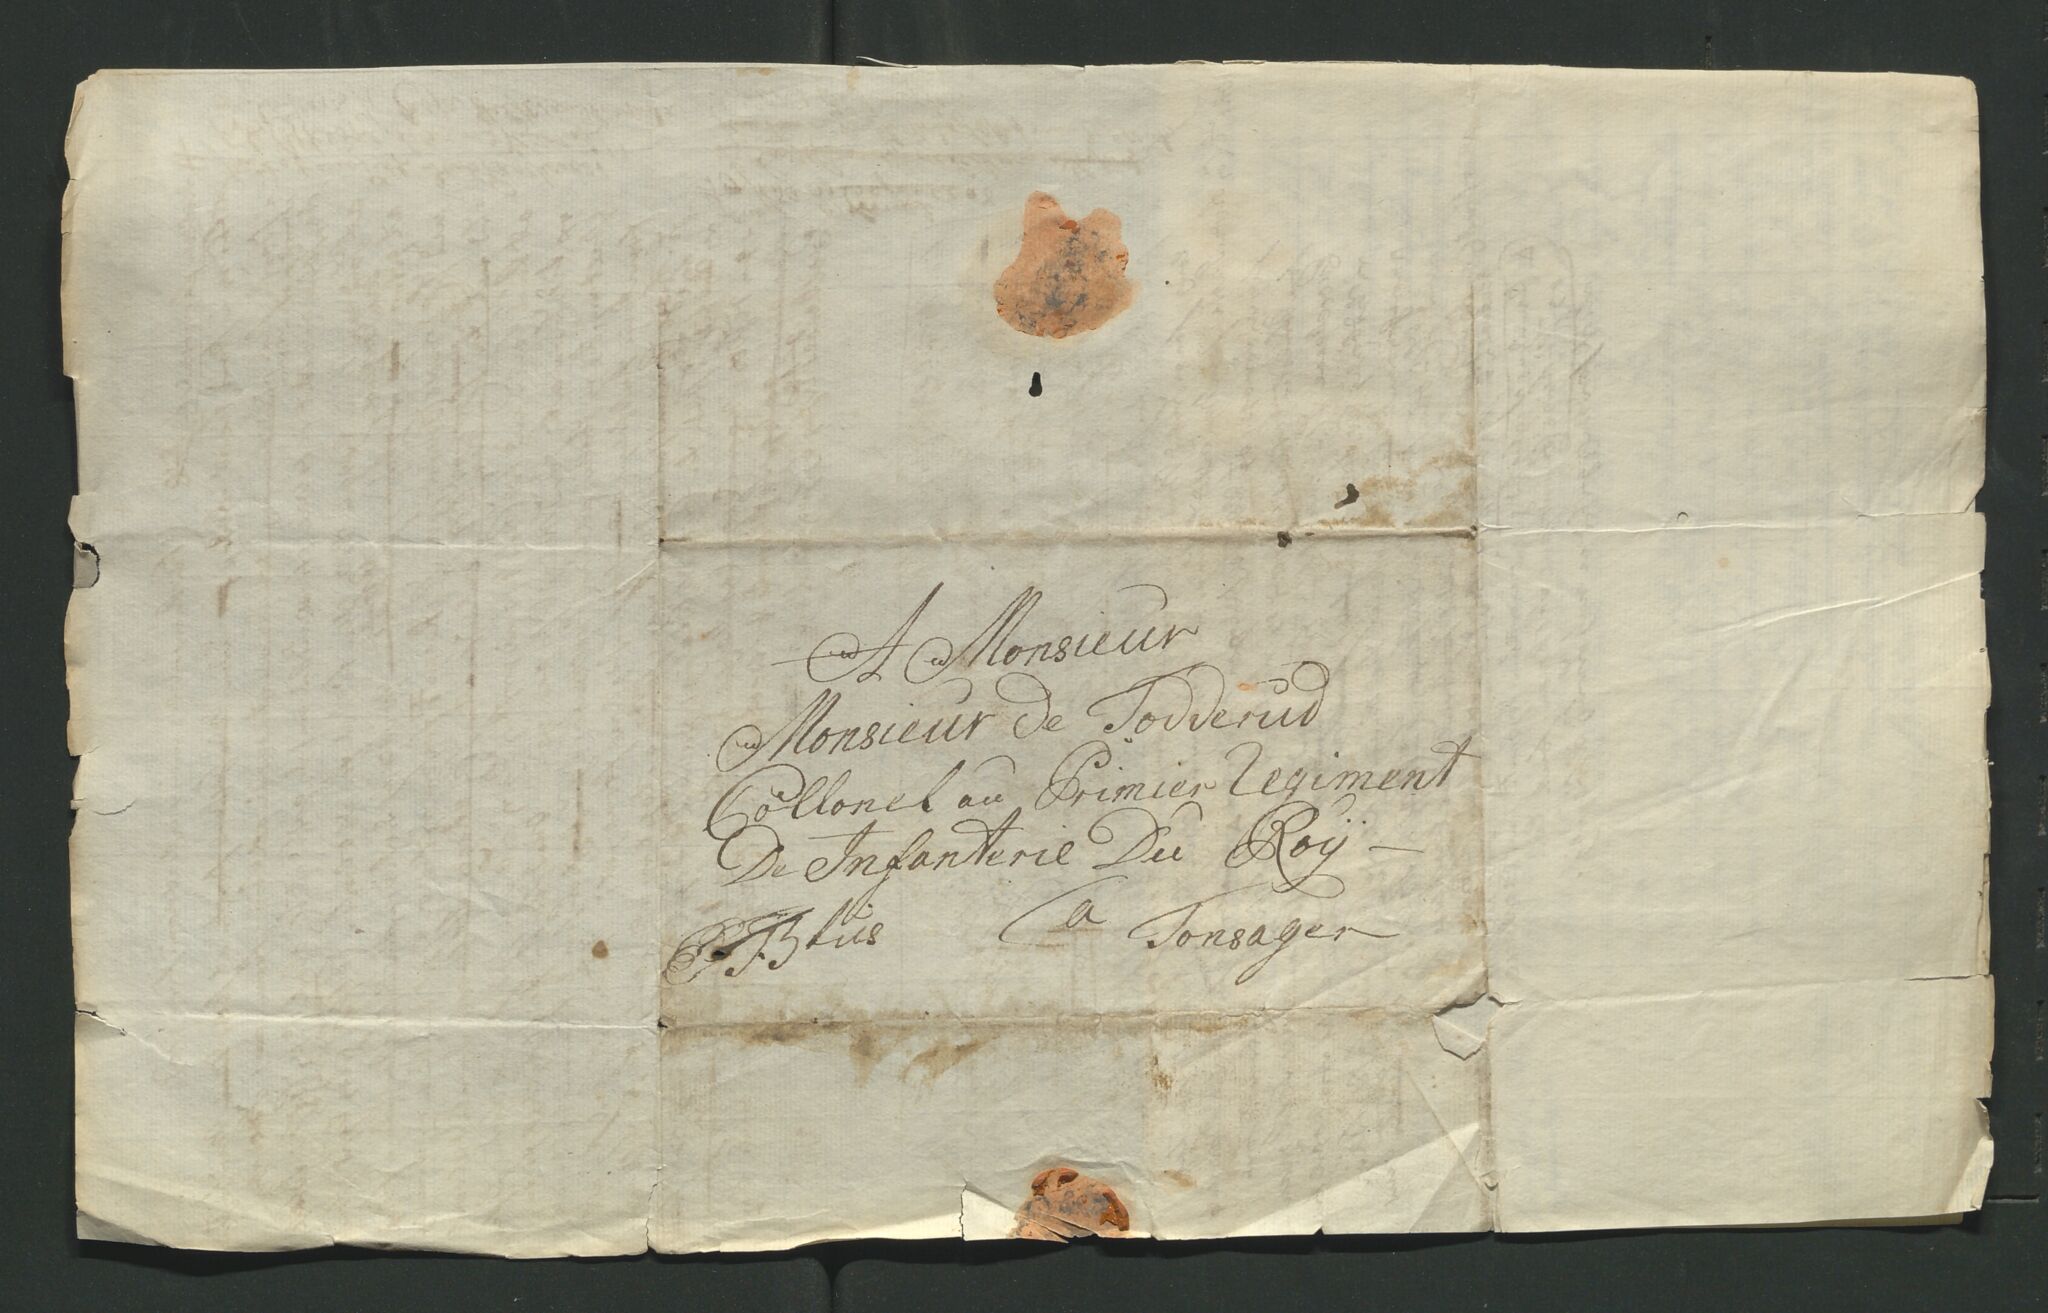 A Monsieur
Monsieur de Todderud
Collonel au Primier Regiment
De Infanterie Du Roÿ
a Tonsager